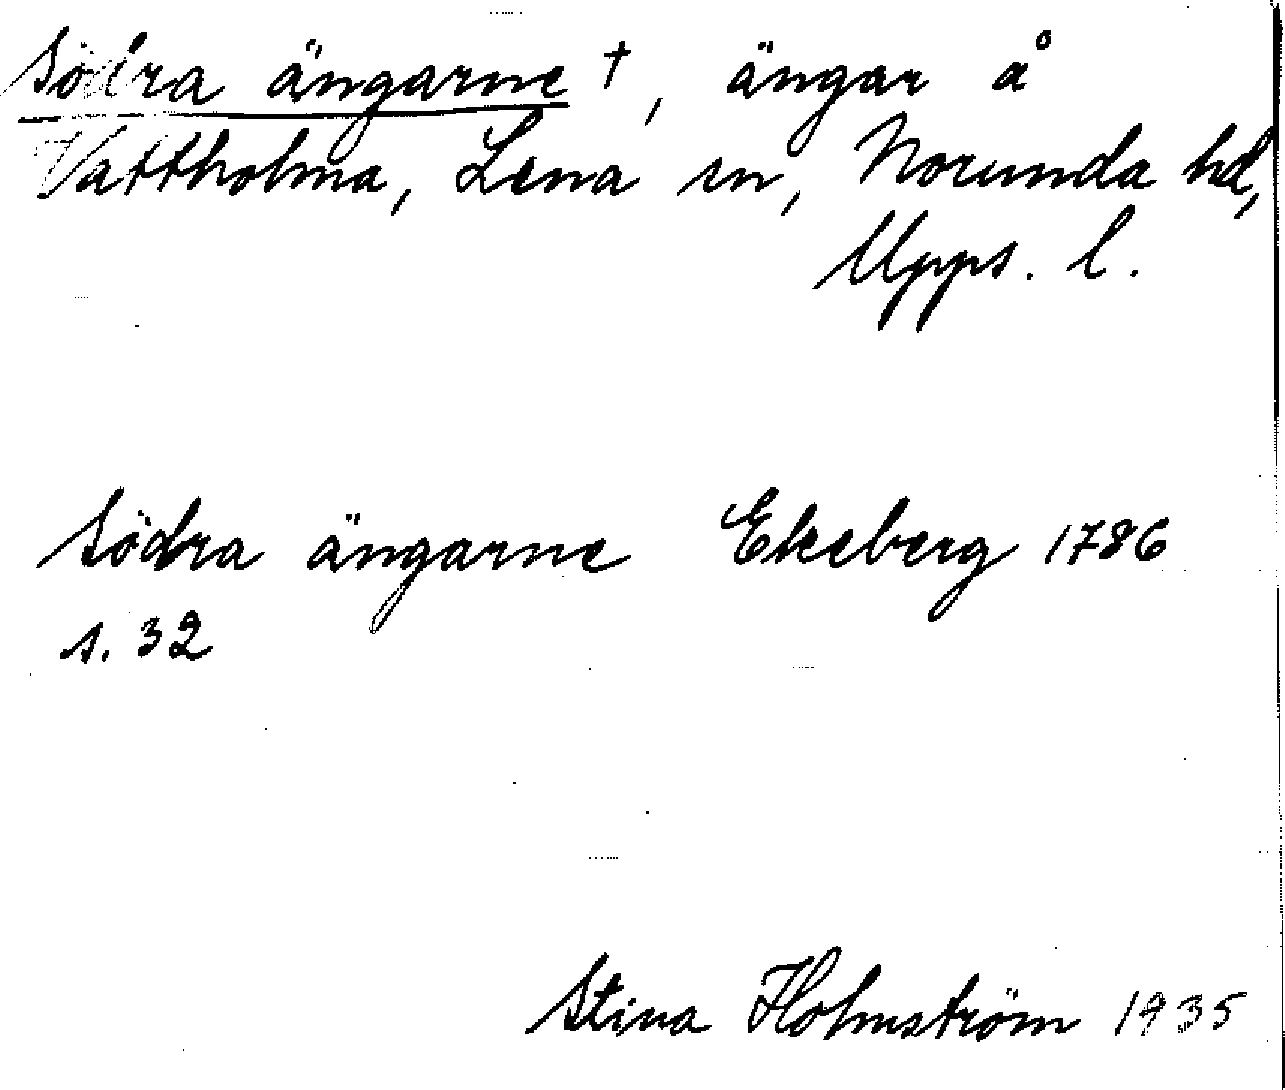 Södra ängarne †, ängar å
Vattholma, Lena sn, Norunda hd,
Upps. l.
Södra ängarne Ekeberg 1786
s. 32
Stina Holmström 1935